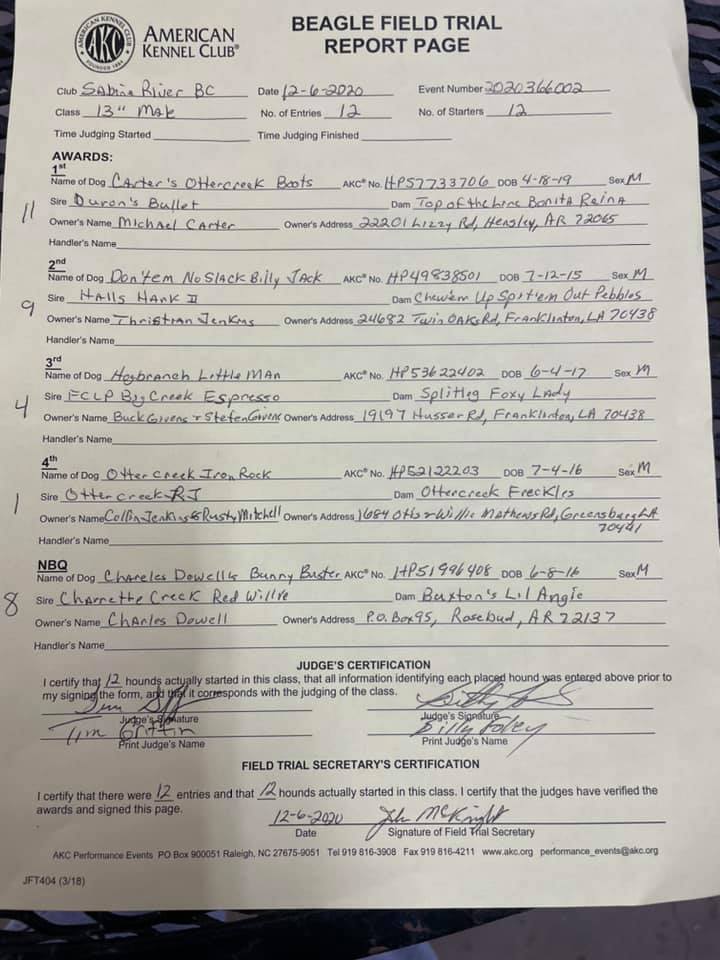 AMERICAN KENNEL CLUB
FOUNDED 1884
AKC
AMERICAN
KENNEL CLUB®
BEAGLE FIELD TRIAL
REPORT PAGE
Club Sabine River BC Date 12-6-2020 Event Number 2020366002
Class 13" Male No. of Entries 12 No. of Starters 12
Time Judging Started Time Judging Finished
AWARDS:
1st
Name of Dog Carter's Ottercreek Boots AKC® No. HP57733706 DOB 4-18-19 Sex M
11 Sire Duron's Bullet Dam Top of the Line Bonita Reina
Owner's Name Michael Carter Owner's Address 22201 Lizzy Rd, Hensley, AR 72065
Handler's Name
2nd
Name of Dog Don't em No Slack Billy Jack AKC® No. HP49838501 DOB 7-12-15 Sex M
9 Sire Halls Hank II Dam Chew'em Up Spit'em Out Pebbles
Owner's Name Thristian Jenkins Owner's Address 24682 Twin Oaks Rd, Franklinton, LA 70438
Handler's Name
3rd
Name of Dog Hogbranch Little Man AKC® No. HP53622402 DOB 6-4-17 Sex M
4 Sire FCLP Big Creek Espresso Dam Splitleg Foxy Lady
Owner's Name Buck Givens & Stefen Givens Owner's Address 19197 Husser Rd, Franklinton, LA 70438
Handler's Name
4th
Name of Dog Otter Creek Iron Rock AKC® No. HP52122203 DOB 7-4-16 Sex M
1 Sire Otter creek RJ Dam Ottercreek Freckles
Owner's Name Collin Jenkins & Rusty Mitchell Owner's Address 1684 Willie Mathews Rd, Greensburg LA
70441
Handler's Name
NBQ
Name of Dog Chareles Dowell's Bunny Buster AKC® No. HP51996408 DOB 6-8-16 Sex M
8 Sire Charrette Creek Red Willie Dam Buxton's Lil Angie
Owner's Name Charles Dowell Owner's Address P.O. Box 95, Rosebud, AR 72137
Handler's Name
JUDGE'S CERTIFICATION
I certify that 12 hounds actually started in this class, that all information identifying each placed hound was entered above prior to
my signing the form, and that it corresponds with the judging of the class.
Judge's Signature Judge's Signature
Tim Griffin Billy Foley
Print Judge's Name Print Judge's Name
FIELD TRIAL SECRETARY'S CERTIFICATION
I certify that there were 12 entries and that 12 hounds actually started in this class. I certify that the judges have verified the
awards and signed this page.
12-6-2020 John McKnight
Date Signature of Field Trial Secretary
AKC Performance Events PO Box 900051 Raleigh, NC 27675-9051 Tel 919 816-3908 Fax 919 816-4211 www.akc.org performance_events@akc.org
JFT404 (3/18)